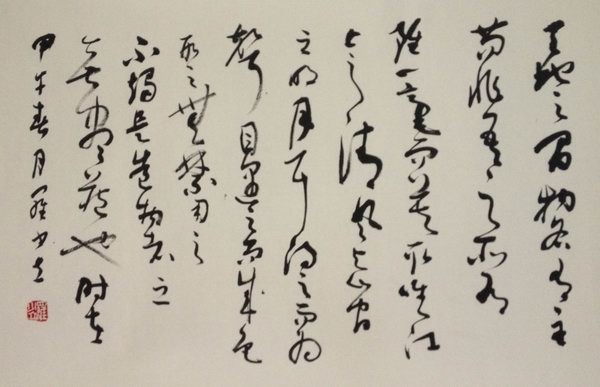 天地之間物各有主
苟非吾之所有
雖一毫而莫取唯江
上之清風與山間
之明月耳得之而為
聲目遇之而成色
取之無禁用之
不竭是造物者之
無盡藏也時在
甲午春月